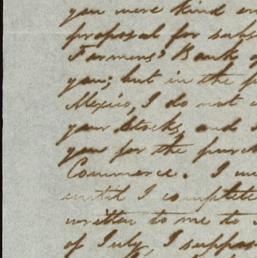 you were kind en
proposal for subs
Farmers' Bank o
you; but in the p
Mexico, I do not
your stocks, and
you for the purch
Commerce. I
until I complete
written to me to
of July, I suppos